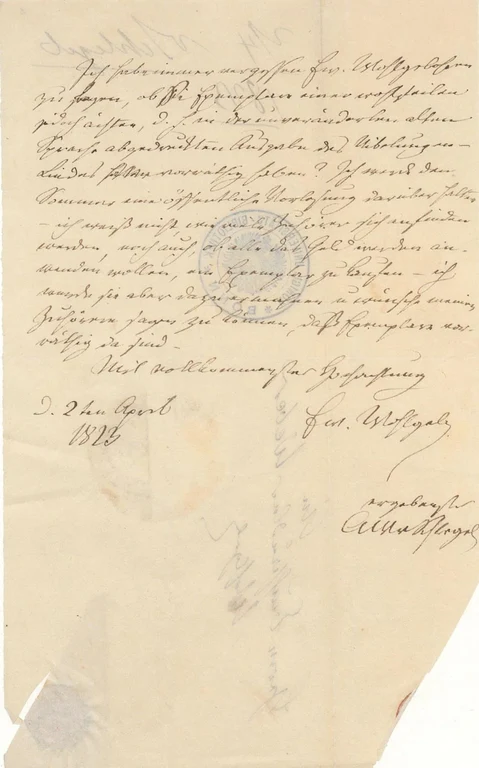 Ich habe immer vergessen Ew. Wohlgebohren
zu fragen, ob Sie Exemplare einer wohlfeilen
jedoch ächten, d. h. in der unveränderten alten
Sprache abgedruckten Ausgabe des Nibelungen-
Liedes vorräthig haben? Ich werde den
Sommer eine öffentliche Vorlesung darüber halten
– ich weiß nicht, wie viele Zuhörer sich einfinden
werden, noch auch, ob alle das Geld werden an-
wenden wollen, ein Exemplar zu kaufen – ich
werde sie aber dazu ermahnen u wünsche meinen
Zuhörern sagen zu können, daß Exemplare vor-
räthig da sind.
Mit vollkommenster Hochachtung
d. 2ten April
1823
Ew. Wohlgeb.
ergebenster
AWvSchlegel